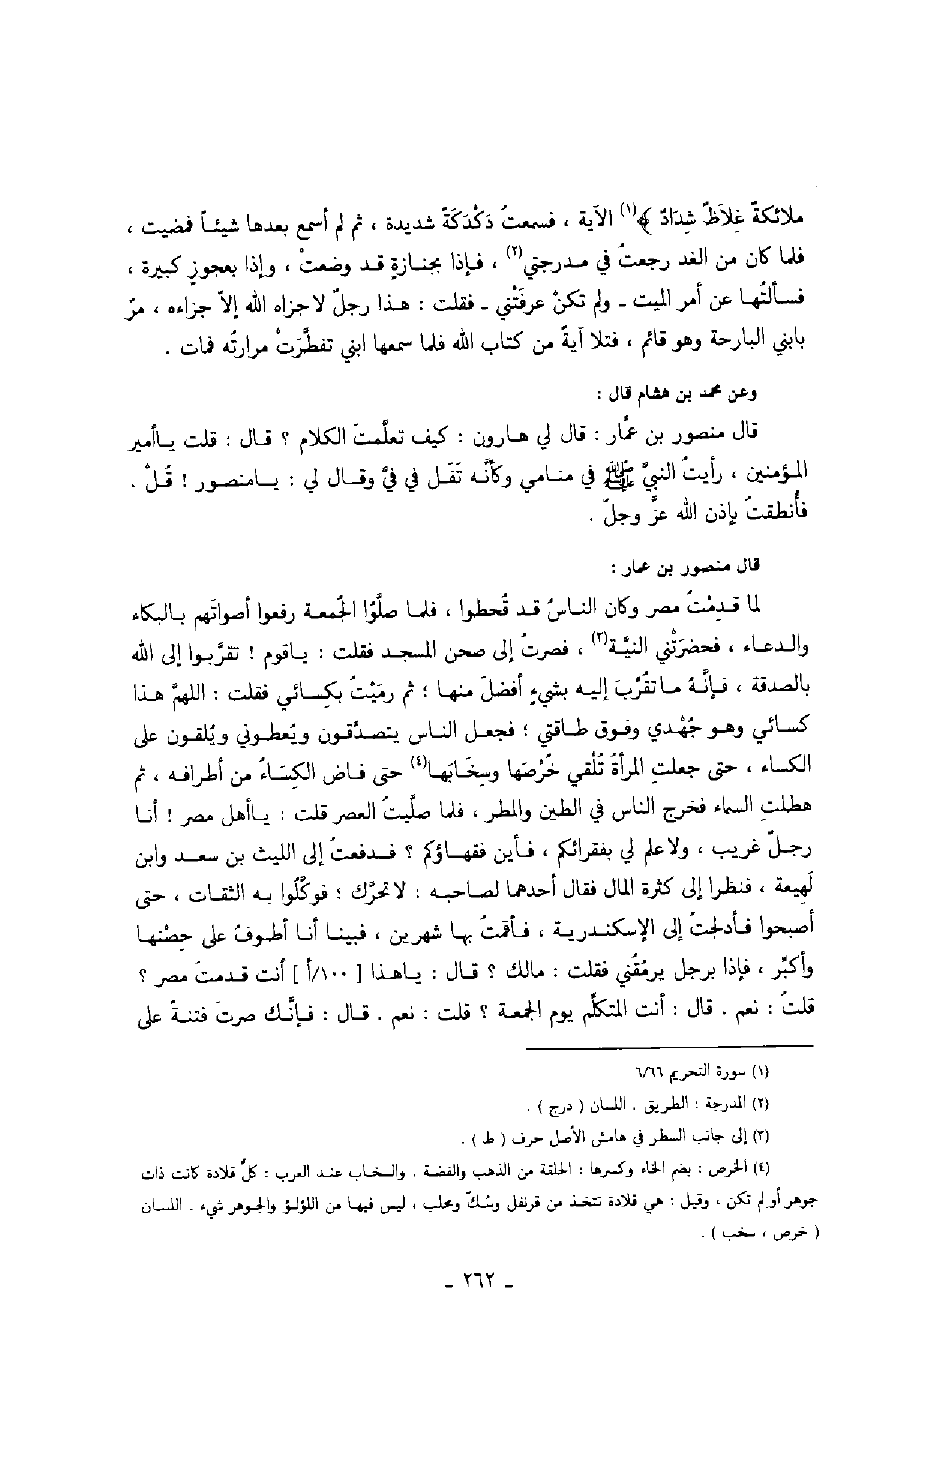 ملائكةٌ غِلاَظٌ شِدَادٌ ﴾(١) الآية ، فسمعتُ دَكْدَكَةً شديدة ، ثم لم أسمع بعدها شيئاً فمضيت ،
فلما كان من الغد رجعتُ في مدرجتي(٢) ، فإذا بجنازةٍ قد وضعتْ ، وإذا بعجوزٍ كبيرة ،
فسألتُها عن أمر الميت ـ ولم تكنْ عرفَتْني ـ فقلت : هذا رجلٌ لاجزاه الله إلاّ جزاءه ، مرَّ
بابني البارحة وهو قائم ، فتلا آيةً من كتاب الله فلما سمعها ابني تفطَّرَتْ مرارتُه فمات .
وعن محمد بن هشام قال :
قال منصور بن عمَّار : قال لي هارون : كيف تعلَّمتَ الكلام ؟ قال : قلت ياأمير
المؤمنين ، رأيتُ النبيَّ ﷺ في منامي وكأنَّه تَفَل في فيَّ وقال لي : يامنصور ! قُلْ .
فأُنطقتُ بإذن الله عزَّ وجلّ .
قال منصور بن عمار :
لما قدِمْتُ مصر وكان الناسُ قد قُحطوا ، فلما صلَّوُا الجُمعة رفعوا أصواتَهم بالبكاء
والدعاء ، فحضرَتْني النيَّة(٣) ، فصرتُ إلى صحن المسجد فقلت : ياقوم ! تقرَّبوا إلى الله
بالصدقة ، فإنَّهُ ماتُقُرِّبَ إليه بشيءٍ أفضلَ منها ؛ ثم رميْتُ بكسائي فقلت : اللهمَّ هذا
كسائي وهو جُهْدي وفوق طاقتي ؛ فجعل الناس يتصدَّقون ويُعطوني ويُلقون على
الكساء ، حتى جعلتِ المرأةُ تُلْقي خُرْصَها وسِخَابَها(٤) حتى فاض الكِسَاءُ من أطرافه ، ثم
هطلتِ السماء فخرج الناس في الطين والمطر ، فلما صلَّيتُ العصر قلت : ياأهل مصر ! أنا
رجلٌ غريب ، ولاعلم لي بفقرائكم ، فأين فقهاؤكم ؟ فدفعتُ إلى الليث بن سعد وابن
لَهيعة ، فنظرا إلى كثرة المال فقال أحدهما لصاحبه : لاتحرِّك ؛ فوكَّلُوا به الثقات ، حتى
أصبحوا فأدلجتُ إلى الإسكندرية ، فأقمتُ بها شهرين ، فبينا أنا أطوفُ على حِصْنها
وأكبِّر ، فإذا برجل يرمُقُني فقلت : مالك ؟ قال : ياهذا [ ١٠٠/أ ] أنت قدمتَ مصر ؟
قلتُ : نعم . قال : أنت المتكلِّم يوم الجمعة ؟ قلت : نعم . قال : فإنَّك صرتَ فتنةً على
(١) سورة التحريم ٦/٦٦
(٢) المدرجة : الطريق . اللسان ( درج ) .
(٣) إلى جانب السطر في هامش الأصل حرف ( ط ) .
(٤) الخرص : بضم الخاء وكسرها : الحلقة من الذهب والفضة . والسخاب عند العرب : كلُّ قلادة كانت ذات
جوهر أو لم تكن ، وقيل : هي قلادة تتخذ من قرنفل وسُكّ ومحلب ، ليس فيها من اللؤلؤ والجوهر شيء . اللسان
( خرص ، سخب ) .
ـ ٢٦٢ ـ